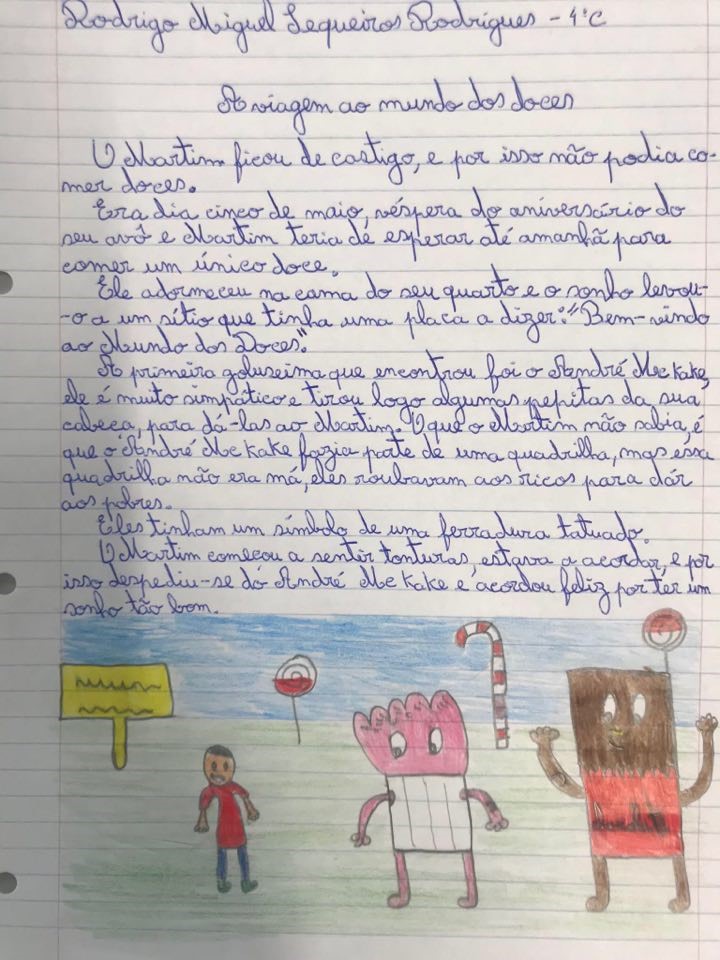 Rodrigo Miguel Sequeiros Rodrigues - 4ºC
A viagem ao mundo dos doces
O Martim ficou de castigo, e por isso não podia co-
mer doces.
Era dia cinco de maio, véspera do aniversário do
seu avô e Martim teria de esperar até amanhã para
comer um único doce.
Ele adormeceu na cama do seu quarto e o sonho levou-
-o a um sítio que tinha uma placa a dizer: "Bem-vindo
ao Mundo dos Doces."
A primeira guloseima que encontrou foi o André Mc kake,
ele é muito simpático e tirou logo algumas pepitas da sua
cabeça, para dá-las ao Martim. O que o Martim não sabia, é
que o André Mc kake fazia parte de uma quadrilha, mas essa
quadrilha não era má, eles roubavam aos ricos para dár
aos pobres.
Eles tinham um símbolo de uma ferradura tatuado.
O Martim começou a sentir tonturas, estava a acordar, e por
isso despediu-se do André Mc kake e acordou feliz por ter um
sonho tão bom.